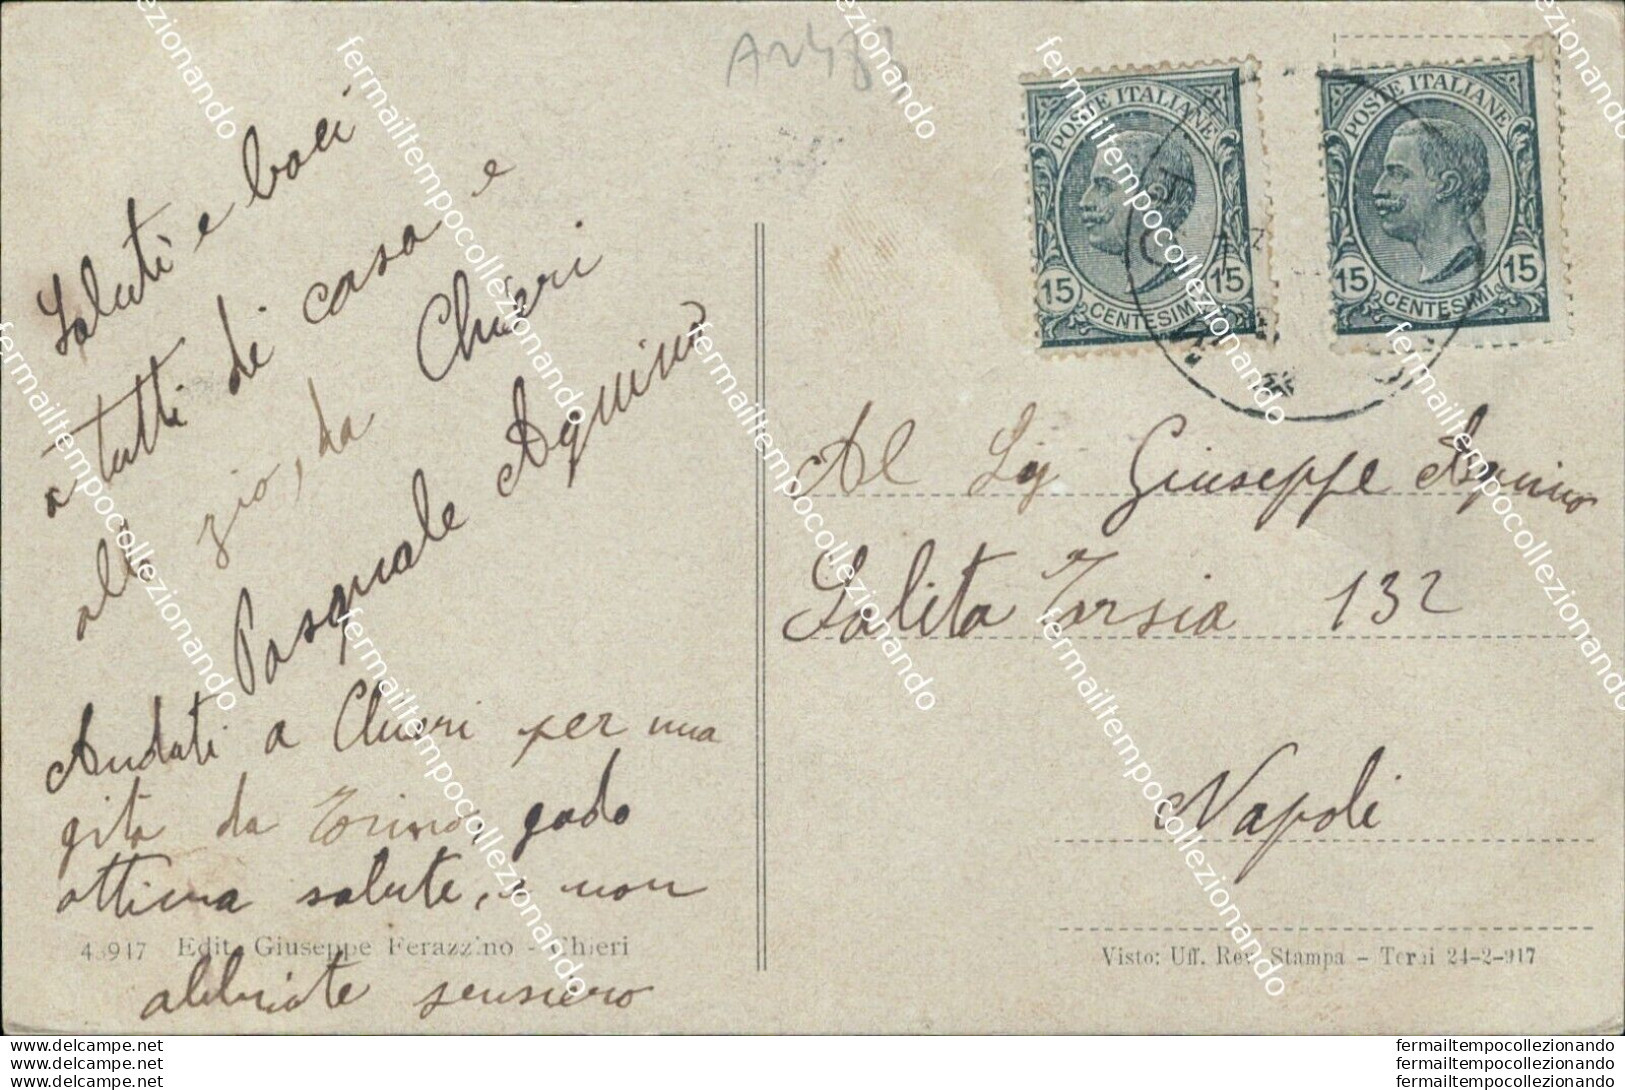 Saluti e baci
a tutti di casa e
allo zio, da Chieri
Pasquale Aquino
Andati a Chieri per una
gita da Torino, godo
ottima salute, e non
abbiate pensiero
43917 Edit. Giuseppe Ferazzino - Chieri
POSTE ITALIANE
15 CENTESIMI 15
POSTE ITALIANE
15 CENTESIMI 15
Al Sig Giuseppe Aquino
Salita Tarsia 132
Napoli
Visto: Uff. Rev. Stampa - Terni 24-2-917
fermailtempocollezionando
fermailtempocollezionando
fermailtempocollezionando
fermailtempocollezionando
fermailtempocollezionando
fermailtempocollezionando
www.fermailtempocollezionando
www.fermailtempocollezionando
www.fermailtempocollezionando
fermailtempocollezionando
fermailtempocollezionando
fermailtempocollezionando